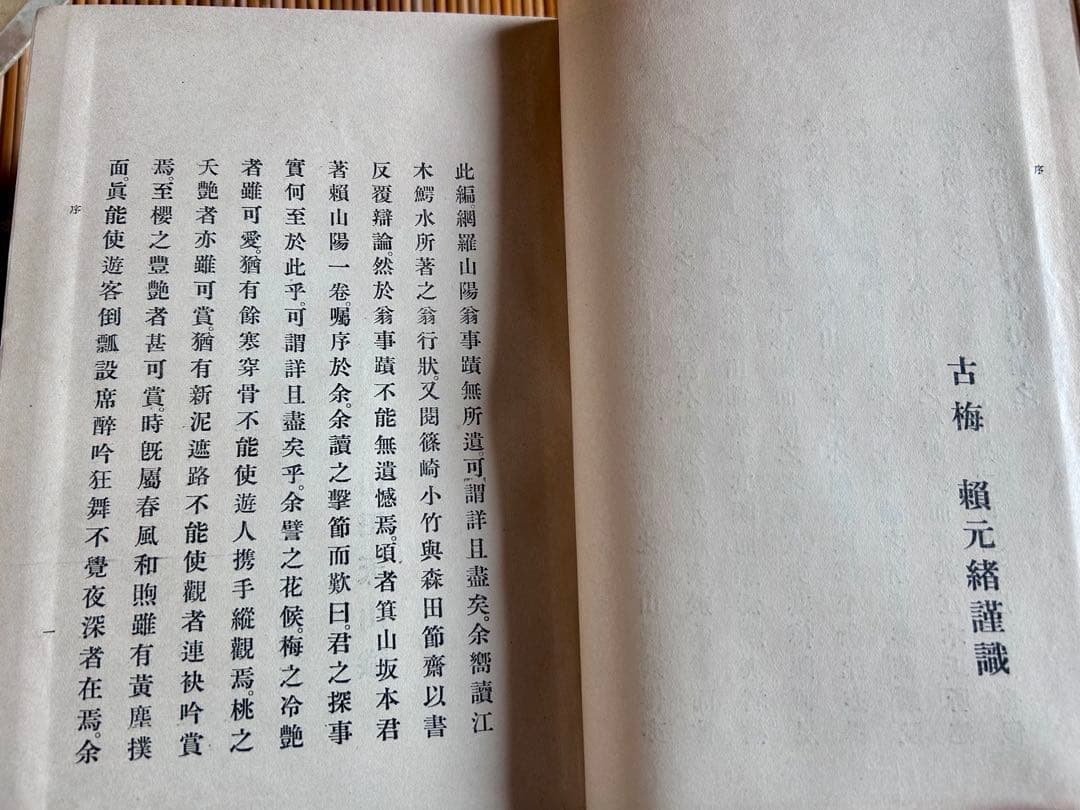 序
古梅　賴元緒謹識
此編網羅山陽翁事蹟無所遺。可謂詳且盡矣。余嚮讀江
木鰐水所著之翁行狀。又閱篠崎小竹與森田節齋以書
反覆辯論。然於翁事蹟不能無遺憾焉。頃者箕山坂本君
著賴山陽一卷。囑序於余。余讀之擊節而歎曰。君之探事
實何至於此乎。可謂詳且盡矣乎。余譬之花候。梅之冷艷
者雖可愛。猶有餘寒穿骨不能使遊人携手縱觀焉。桃之
夭艷者亦雖可賞。猶有新泥遮路不能使觀者連袂吟賞
焉。至櫻之豐艷者甚可賞。時旣屬春風和煦雖有黃塵撲
面。眞能使遊客倒瓢設席醉吟狂舞不覺夜深者在焉。余
序
一